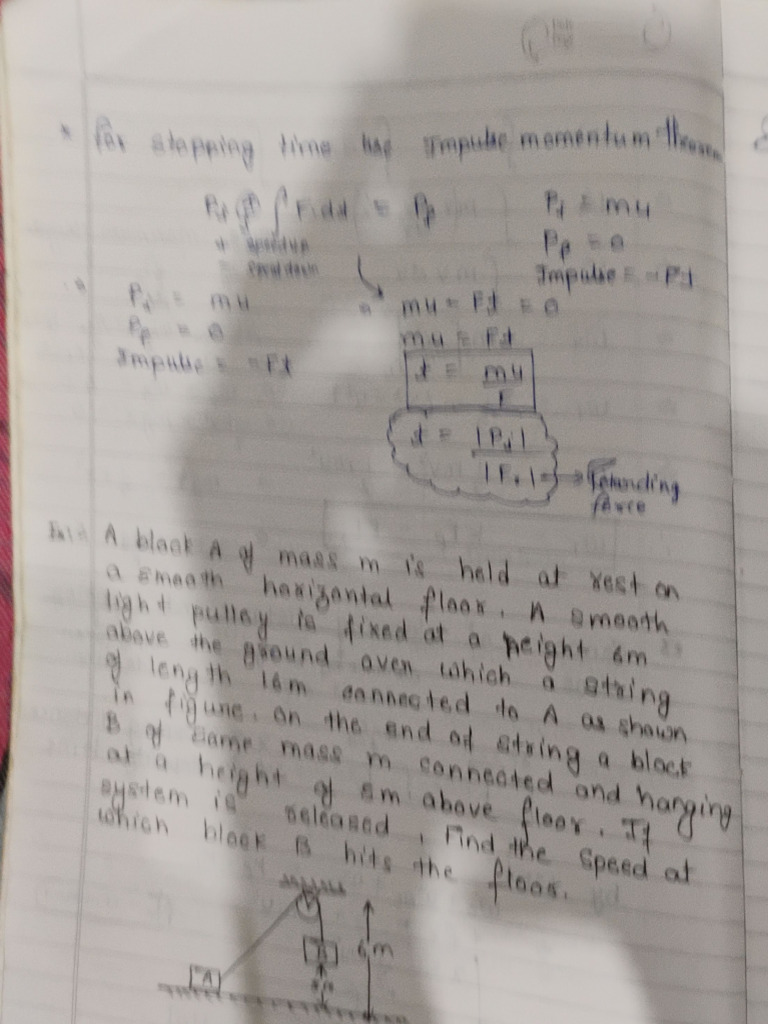 * For stopping time use Impulse momentum Theorem
Pi ± ∫F.dt = Pf
Pi = mu
+ speedup
Pf = 0
- speed down
Impulse = -Ft
Pi = mu
mu - Ft = 0
Pf = 0
mu = Ft
Impulse = -Ft
t = mu/F
t = |Pi|/|Fr| → Retarding
force
A block A of mass m is held at rest on
a smooth horizontal floor. A smooth
light pulley is fixed at a height 6m
above the ground over which a string
of length 16m connected to A as shown
in figure. On the end of string a block
B of same mass m connected and hanging
at a height of 5m above floor. If
system is released, Find the speed at
which block B hits the floor.
A
B
6m